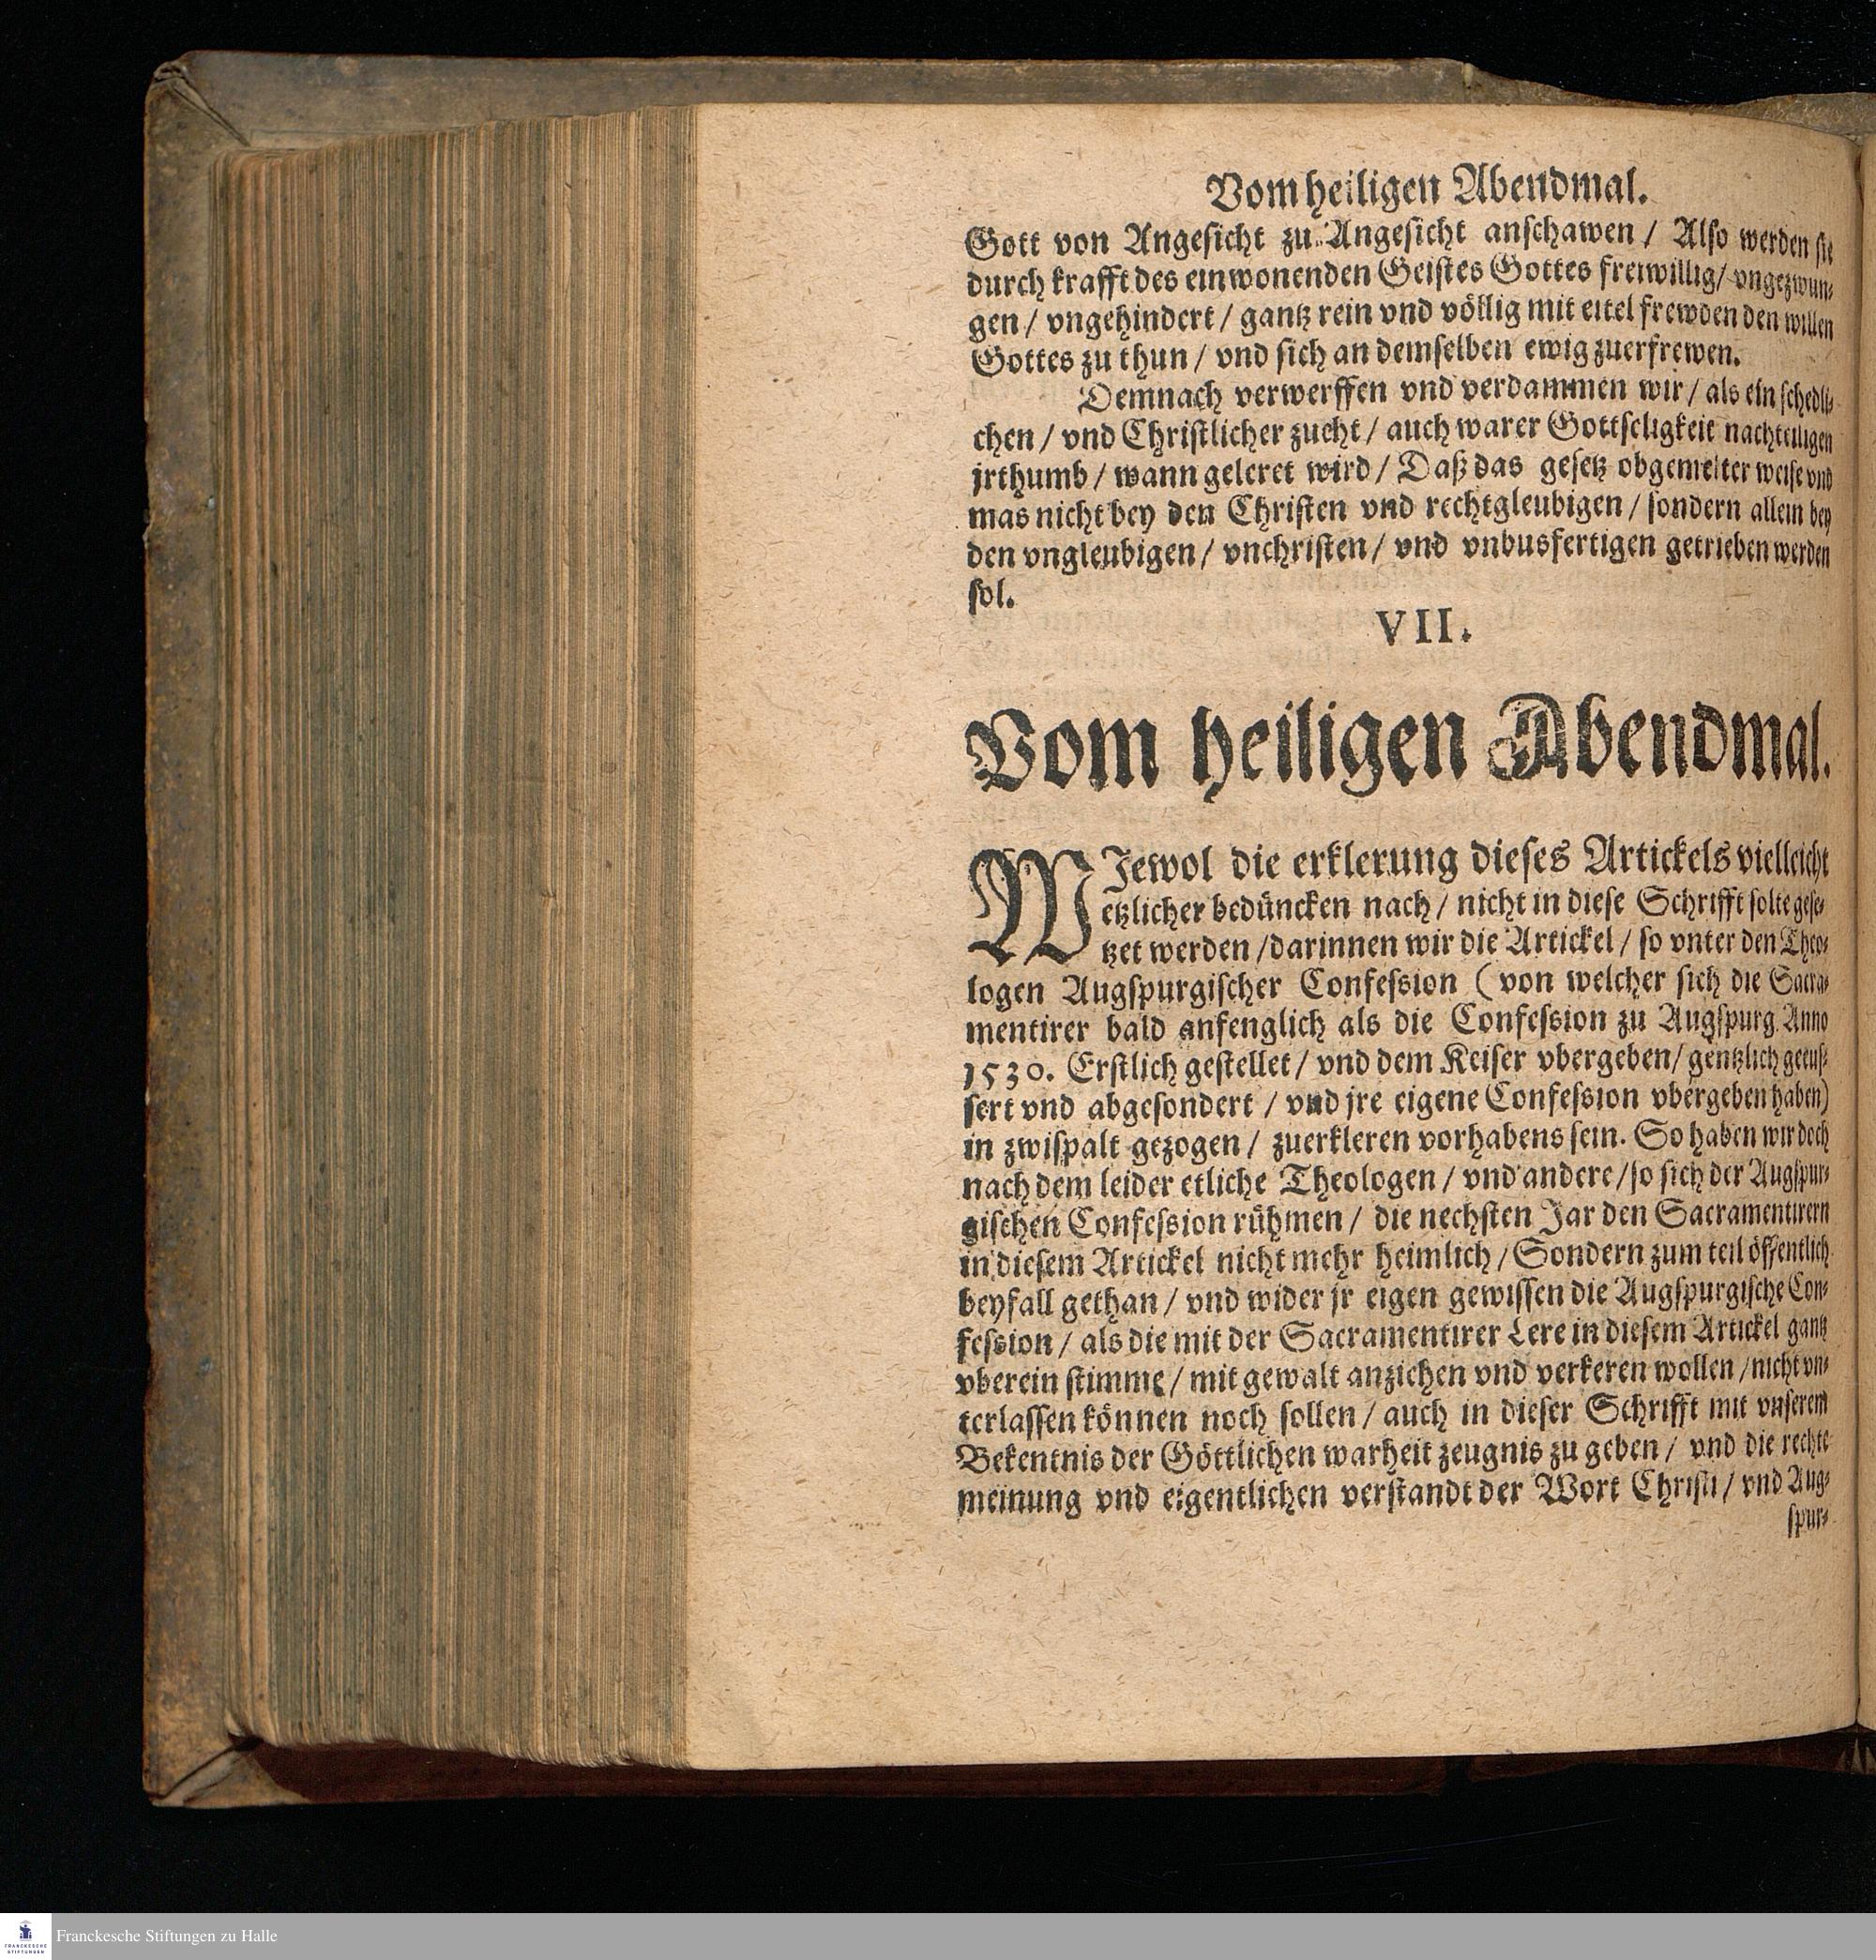 Vom heiligen Abendmal.
Gott von Angesicht zu Angesicht anschawen / Also werden sie
durch krafft des einwonenden Geistes Gottes freiwillig / vngezwun-
gen / vngehindert / gantz rein vnd völlig mit eitel frewden den willen
Gottes zu thun / vnd sich an demselben ewig zuerfrewen.
Demnach verwerffen vnd verdammen wir / als ein schedli-
chen / vnd Christlicher zucht / auch warer Gottseligkeit nachteiligen
jrthumb / wann geleret wird / Daß das gesetz obgemelter weise vnd
mas nicht bey den Christen vnd rechtgleubigen / sondern allein bey
den vngleubigen / vnchristen / vnd vnbusfertigen getrieben werden
sol.
VII.
Vom heiligen Abendmal.
WJewol die erklerung dieses Artickels vielleicht
etzlicher bedüncken nach / nicht in diese Schrifft solte gese-
tzet werden / darinnen wir die Artickel / so vnter den Theo-
logen Augspurgischer Confession (von welcher sich die Sacra-
mentirer bald anfenglich als die Confession zu Augspurg Anno
1530. Erstlich gestellet / vnd dem Keiser vbergeben / gentzlich geeus-
sert vnd abgesondert / vnd jre eigene Confession vbergeben haben)
in zwispalt gezogen / zuerkleren vorhabens sein. So haben wir doch
nach dem leider etliche Theologen / vnd andere / so sich der Augspur-
gischen Confession rühmen / die nechsten Jar den Sacramentirern
in diesem Artickel nicht mehr heimlich / Sondern zum teil öffentlich
beyfall gethan / vnd wider jr eigen gewissen die Augspurgische Con-
fession / als die mit der Sacramentirer Lere in diesem Artickel gantz
vberein stimme / mit gewalt anziehen vnd verkeren wollen / nicht vn-
terlassen können noch sollen / auch in dieser Schrifft mit vnserem
Bekentnis der Göttlichen warheit zeugnis zu geben / vnd die rechte
meinung vnd eigentlichen verstandt der Wort Christi / vnd Aug-
spur-
Franckesche Stiftungen zu Halle
FRANCKESCHE
STIFTUNGEN